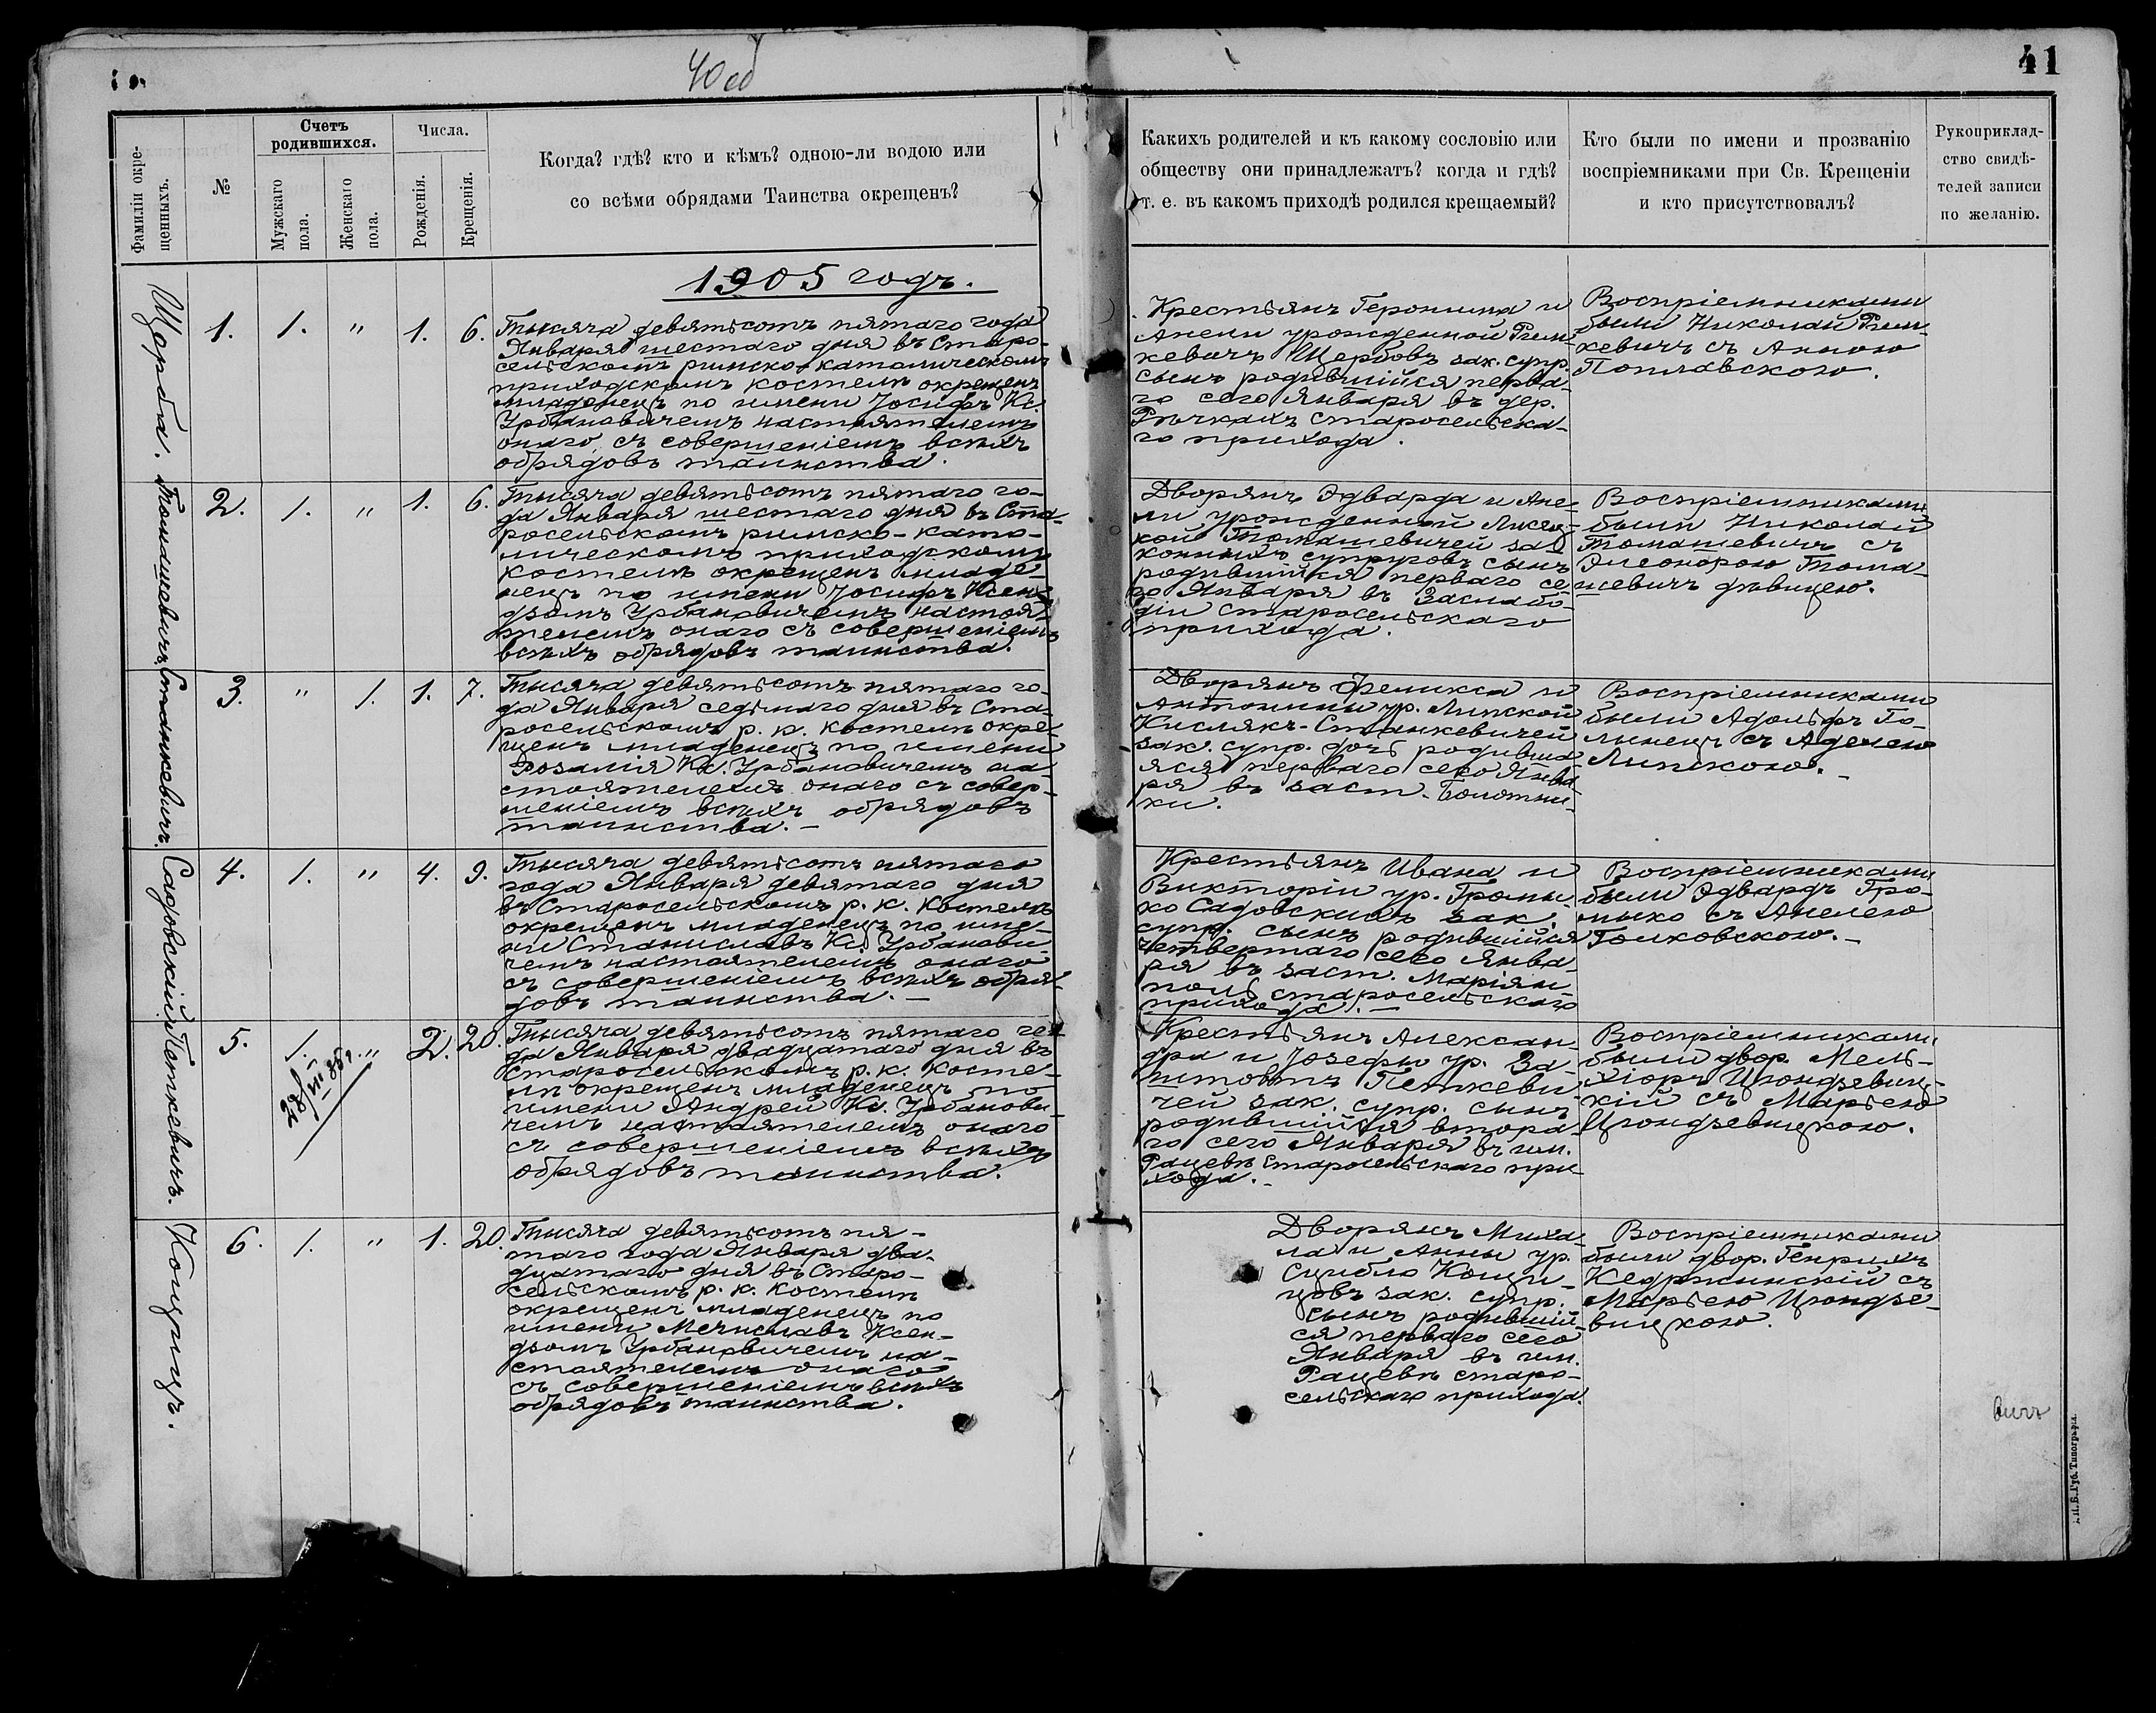 40об
41
Фамиліи окре-
щенныхъ.
№
Счетъ
родившихся.
Мужскаго
пола.
Женскаго
пола.
Числа.
Рожденія.
Крещенія.
Когда? гдѣ? кто и кѣмъ? одною-ли водою или
со всѣми обрядами Таинства окрещенъ?
Какихъ родителей и къ какому сословію или
обществу они принадлежатъ? когда и гдѣ?
т. е. въ какомъ приходѣ родился крещаемый?
Кто были по имени и прозванію
воспріемниками при Св. Крещеніи
и кто присутствовалъ?
Рукоприклад-
ство свидѣ-
телей записи
по желанію.
1905 годъ.
Щерба.
1. 1. " 1. 6.
Тысяча девятьсотъ пятаго года
Января шестаго дня въ Старо-
сельскомъ римско-католическомъ
приходскомъ костелѣ окрещенъ
младенецъ по имени Іосифъ Кс.
Урбановичемъ настоятелемъ
онаго, съ совершеніемъ всѣхъ
обрядовъ таинства.
Крестьянъ Геронима и
Анели урожденной Рим-
кевичъ Щербовъ зак. супр.
сынъ родившійся перва-
го сего Января въ дер.
Рѣчкахъ Старосельска-
го прихода.
Воспріемниками
были Николай Рим-
кевичъ съ Анною
Поплавскою.
Томашевичъ
2. 1. " 1. 6.
Тысяча девятьсотъ пятаго го-
да Января шестаго дня въ Ста-
росельскомъ римско-като-
лическомъ приходскомъ
костелѣ окрещенъ младе-
нецъ по имени Іосифъ Ксен-
дзомъ Урбановичемъ настоя-
телемъ онаго съ совершеніемъ
всѣхъ обрядовъ таинства.
Дворянъ Эдварда и Ане-
ли урожденной
Томашевичей за-
конныхъ супруговъ сынъ
родившійся перваго се-
го Января въ Заслабо-
діи старосельскаго
прихода.
Воспріемниками
были Николай
Томашевичъ съ
Элеонорою Тома-
шевичъ дѣвицею.
Станкевичъ.
3. " 1. 1. 7.
Тысяча девятьсотъ пятаго го-
да Января седьмаго дня въ Ста-
росельскомъ р. к. костелѣ окре-
щенъ младенецъ по имени
Розалія Кс. Урбановичемъ на-
стоятелемъ онаго съ совер-
шеніемъ всѣхъ обрядовъ
таинства. –
Дворянъ Феликса и
Антонины ур. Липской
Кислякъ-Станкевичей
зак. супр. дочь родивша-
яся перваго сего Янва-
ря въ заст. Болотни-
ки.
Воспріемниками
были Адольфъ Го-
линецъ съ Аделею
Липскою. –
Садовскій
4. 1. " 4. 9.
Тысяча девятьсотъ пятаго
года Января девятаго дня
въ Старосельскомъ р. к. костелѣ
окрещенъ младенецъ по име-
ни Станиславъ Кс. Урбанови-
чемъ настоятелемъ онаго
съ совершеніемъ всѣхъ обря-
довъ таинства. –
Крестьянъ Ивана и
Викторіи ур. Громы-
ко Садовскихъ зак.
супр. сынъ родившійся
четвертаго сего Янва-
ря въ заст. Маріян-
поль старосельскаго
прихода. –
Воспріемниками
были Эдвардъ Гро-
мыко съ Анелею
Голковскою. –
Петкевичъ.
5. 1. " 2. 20.
Тысяча девятьсотъ пятаго го-
да Января двадцатаго дня въ
Старосельскомъ р. к. косте-
лѣ окрещенъ младенецъ по
имени Андрей Кс. Урбанови-
чемъ настоятелемъ онаго
съ совершеніемъ всѣхъ
обрядовъ таинства.
Крестьянъ Алексан-
дра и Іозефы ур. За-
Петкеви-
чей зак. супр. сынъ
родившійся втора-
го сего Января въ им.
Рацевѣ Старосельскаго при-
хода. –
Воспріемниками
были двор. Мель-
хіоръ Цюндзевиц-
кій съ Марьею
Цюндзевицкою.
Коцицъ.
6. 1. " 1. 20.
Тысяча девятьсотъ пя-
таго года Января два-
дцатаго дня въ Старо-
сельскомъ р. к. костелѣ
окрещенъ младенецъ по
имени Мечиславъ Ксен-
дзомъ Урбановичемъ на-
стоятелемъ онаго
съ совершеніемъ всѣхъ
обрядовъ таинства.
Дворянъ Миха-
ла и Анны ур.
Сцибло Коци-
цовъ зак. супр.
сынъ родившій-
ся перваго сего
Января въ им.
Рацевѣ старо-
сельскаго прихода.
Воспріемниками
были двор. Генрихъ
Кедржинскій съ
Марьею Цюндзе-
вицкою.
вичъ
Губ. Типографія.